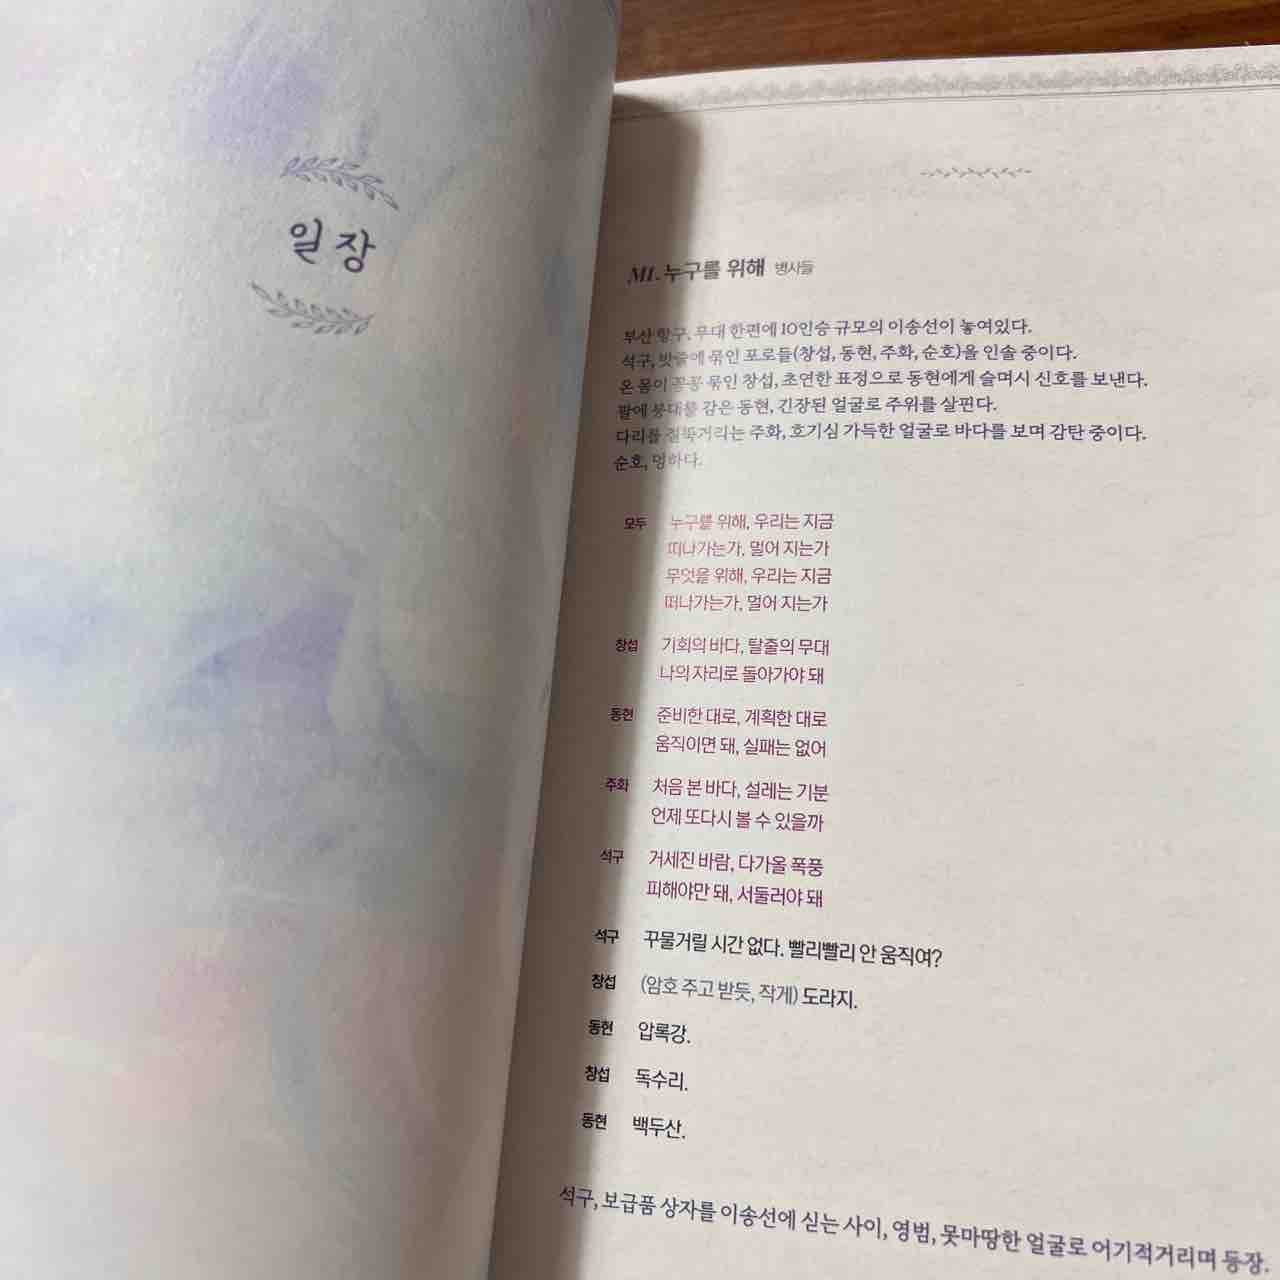 일장
M1. 누구를 위해 병사들
부산 항구, 무대 한편에 10인승 규모의 이송선이 놓여있다.
석구, 밧줄에 묶인 포로들(창섭, 동현, 주화, 순호)을 인솔 중이다.
온 몸이 꽁꽁 묶인 창섭, 초연한 표정으로 동현에게 슬며시 신호를 보낸다.
팔에 붕대를 감은 동현, 긴장된 얼굴로 주위를 살핀다.
다리를 절뚝거리는 주화, 호기심 가득한 얼굴로 바다를 보며 감탄 중이다.
순호, 멍하다.
모두 누구를 위해, 우리는 지금
떠나가는가, 멀어 지는가
무엇을 위해, 우리는 지금
떠나가는가, 멀어 지는가
창섭 기회의 바다, 탈출의 무대
나의 자리로 돌아가야 돼
동현 준비한 대로, 계획한 대로
움직이면 돼, 실패는 없어
주화 처음 본 바다, 설레는 기분
언제 또다시 볼 수 있을까
석구 거세진 바람, 다가올 폭풍
피해야만 돼, 서둘러야 돼
석구 꾸물거릴 시간 없다. 빨리빨리 안 움직여?
창섭 (암호 주고 받듯, 작게) 도라지.
동현 압록강.
창섭 독수리.
동현 백두산.
석구, 보급품 상자를 이송선에 싣는 사이, 영범, 못마땅한 얼굴로 어기적거리며 등장.